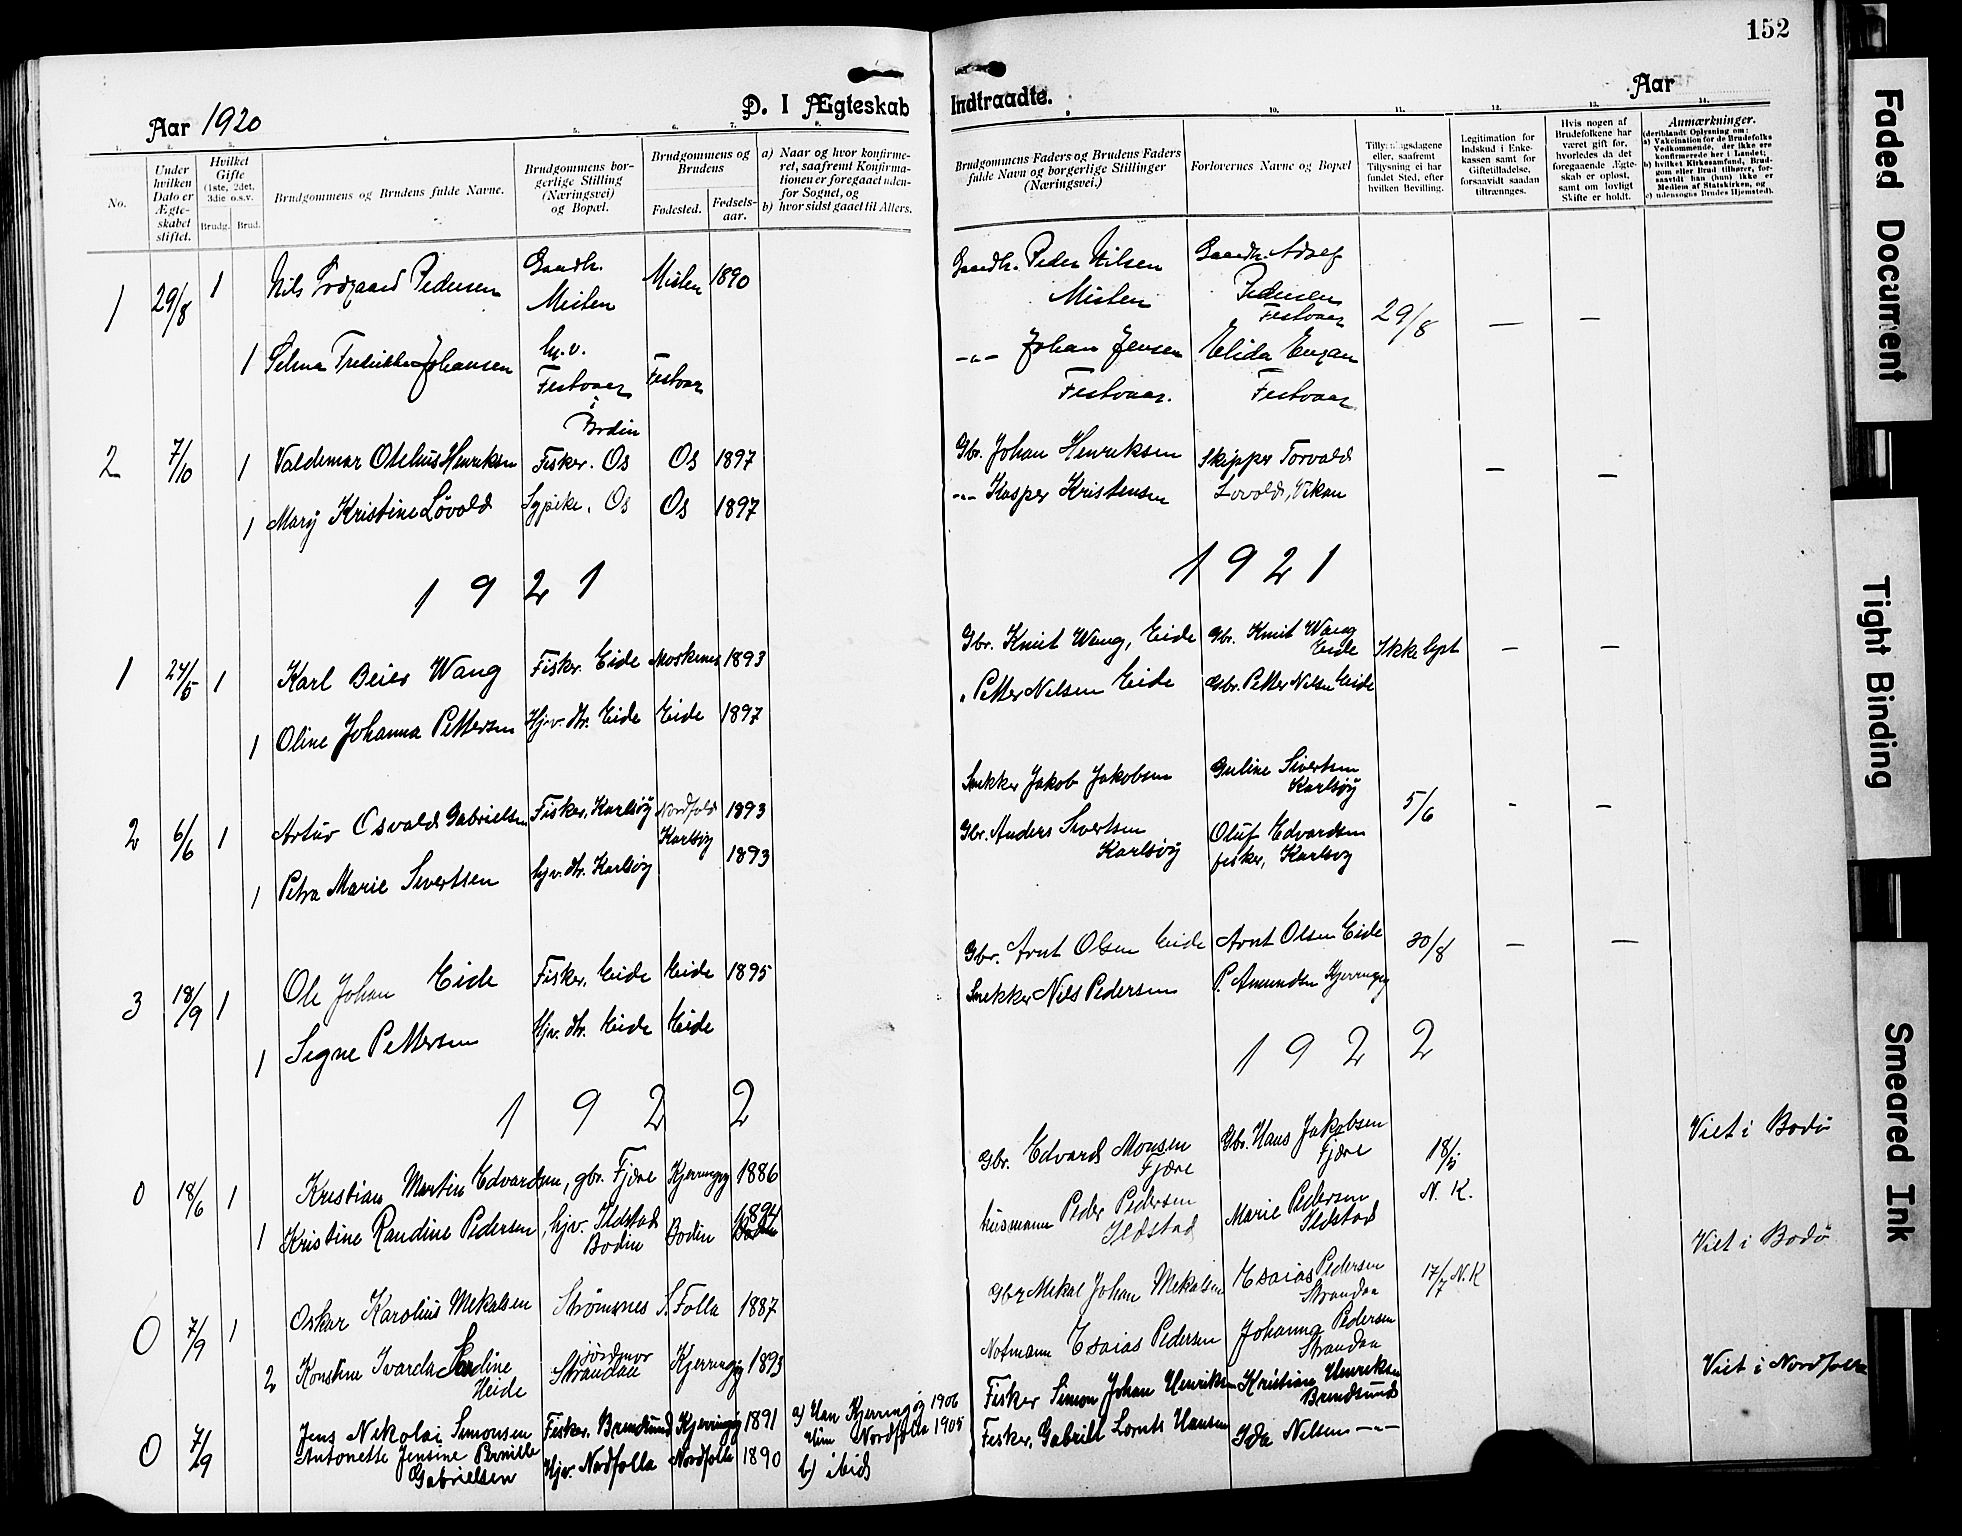 152
Aar 1920
D. I Ægteskab
Indtraadte.
Aar
1. 2. 3. 4. 5. 6. 7. 8. 9. 10. 11. 12. 13. 14.
No.
Under
hvilken
Dato er
Ægte-
skabet
stiftet.
Hvilket
Gifte
(1ste, 2det,
3die o.s.v.
Brudg. Brud.
Brudgommens og Brudens fulde Navne.
Brudgommens bor-
gerlige Stilling
(Næringsvei)
og Bopæl.
Brudgommens og
Brudens
Fødested. Fødsels-
aar.
a) Naar og hvor konfirme-
ret, saafremt Konfirma-
tionen er foregaaet uden-
for Sognet, og
b) hvor sidst gaaet til Alters.
Brudgommens Faders og Brudens Faders
fulde Navn og borgerlige Stillinger
(Næringsvei.)
Forlovernes Navne og Bopæl
Tillysningsdagene
eller, saafremt
Tillysning ei har
fundet Sted, efter
hvilken Bevilling.
Legitimation for
Indskud i Enke-
kassen samt for
Giftetilladelse,
forsaavidt saadan
tiltrænges.
Hvis nogen af
Brudefolkene har
været gift før,
hvorledes da det
foregaaende Ægte-
skab er opløst,
samt om lovligt
Skifte er holdt.
Anmærkninger.
(deriblandt Oplysning om:
a) Vakcination for de Brudefolks
Vedkommende, der ikke ere
konfirmerede her i Landet;
b) hvilket Kirkesamfund, Brud-
gom eller Brud tilhører, for-
saavidt han (hun) ikke er
Medlem af Statskirken, og
c) udensogns Brudes Hjemsted).
1 29/8 1 Nils Pedersen Gaardb. Misten Misten 1890
Gaardb. Peder Nilsen Misten
Gaardb. Pedersen Festvaag 29/8 — —
1 Selma Fredrikke Johansen hj.v. Festvaag i Bodin Festvaag
-"- Johan Jensen Festvaag.
Elida Festvaag
2 7/10 1 Valdemar Otelius Henriksen Fisker. Os Os 1897
Gbr. Johan Henriksen Skipper Torvald — —
1 Mary Kristine Løvold Sypike. Os Os 1897
-"- Kasper Kristensen Løvold, Vikan
1921
1921
1 24/5 1 Karl Beier Wang Fisker Eide Moskenes 1893
Gbr. Knut Wang, Eide Gbr. Knut Wang Eide Ikke lyst - -
1 Oline Johanna Pettersen Hjv. dtr. Eide Eide 1897
" Petter Nilsen Eide Gbr. Petter Nilsen Eide
2 6/6 1 Artur Osvald Gabrielsen Fisker, Karlsøy Nordfold 1893
Snekker Jakob Jakobsen Guline Sivertsen Karlsøy 5/6 - -
1 Petra Marie Sivertsen hjv. dtr. Karlsøy Karlsøy 1893
Gbr. Anders Sivertsen Karlsøy
Oluf Edvardsen fisker, Karlsøy
3 18/9 1 Ole Johan Eide Fisker, Eide Eide 1895
Gbr. Arnt Olsen Eide Arnt Olsen Eide 30/8 — —
1 Signe Pettersen Hjv. dtr. Eide Eide
Snekker Nils Pedersen P. Amundsen Kjerringøy
1922
1922
0 18/6 1 Kristian Martin Edvardsen, gbr. Fjære Kjerringøy 1886
Gbr. Edvard Monsen Fjære
Gbr. Hans Jakobsen Fjære 18/5 Viet i Bodø
1 Kristine Randine Pedersen, hjv. Ildstad Bodin Bodin 1894
husmann Peder Pedersen Ildstad
Marie Pedersen Ildstad N. K.
0 7/9 1 Oskar Karolius Mekalsen Strømsnes S. Folla 1887
Gbr Mekal Johan Mekalsen Esaias Pedersen Strandaa 17/7 N.K Viet i Bodø
2 Konstine Ivarda Sardine Heide jordmor Strandaa Kjerringøy 1893
Notmann Esaias Pedersen Johanna Pedersen Strandaa
0 7/9 Jens Nikolai Simonsen Fisker. Brendsund Kjerringøy 1891 a) Han Kjerringøy 1906
Fisker Simon Johan Henriksen Kristian Henriksen Brendsund Viet i Nordfolla
Antonette Jensine Pernille Gabrielsen Hjv. Nordfolla Nordfolla 1890 Hun Nordfolla 1905
b) ibid
Fisker, Gabriel Lornts Hansen Ida Nilsen -"-
Faded Document
Tight Binding
Smeared Ink